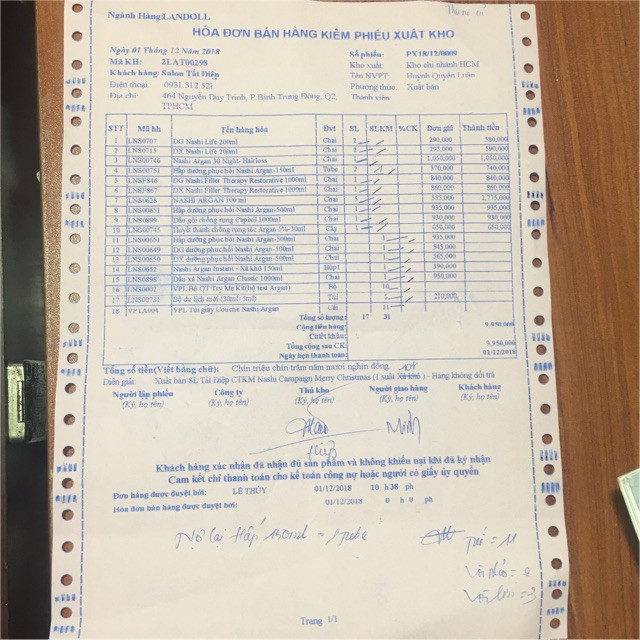 Ngành Hàng:LANDOLL
HÓA ĐƠN BÁN HÀNG KIÊM PHIẾU XUẤT KHO
Ngày 01 Tháng 12 Năm 2018
Số phiếu: PX18/12/0009
Mã KH: 2LAT00298
Kho xuất: Kho chi nhánh HCM
Khách hàng: Salon Tất Điệp
Tên NVPT: Huỳnh Quyền Luân
Điện thoại: 0931.312.521
Phương thức: Xuất bán
Địa chỉ: 464 Nguyễn Duy Trinh, P.Bình Trưng Đông, Q2, TPHCM
Thành viên:
STT Mã hh Tên hàng hóa Đvt SL SLKM %CK Đơn giá Thành tiền
1 LNS0707 DG Nashi Life 200ml Chai 2 290,000 580,000
2 LNS0715 DX Nashi Life 200ml Chai 2 295,000 590,000
3 LNS00746 Nashi Argan 30 Night- Hairloss Chai 1 1,050,000 1,050,000
4 LNS00751 Hấp dưỡng phục hồi Nashi Argan-150ml Tube 2 1 370,000 740,000
5 LNSF846 DG Nashi Filler Therapy Restorative 1000ml Chai 1 840,000 840,000
6 LNSF867 DX Nashi Filler Therapy Restorative 1000ml Chai 1 860,000 860,000
7 LNS0628 NASHI ARGAN 100 ml Chai 5 555,000 2,775,000
8 LNS00651 Hấp dưỡng phục hồi Nashi Argan-500ml Chai 1 935,000 935,000
9 LNS0899 Dầu gội chống rụng Capixil 1000ml Chai 1 930,000 930,000
10 LNS00745 Huyết thanh chống rụng tóc Argan 5%-30ml Cây 1 650,000 650,000
11 LNS00651 Hấp dưỡng phục hồi Nashi Argan-500ml Chai 1 935,000
12 LNS00649 DG dưỡng phục hồi Nashi Argan-500ml Chai 1 545,000
13 LNS00650 DX dưỡng phục hồi Nashi Argan-500ml Chai 1 565,000
14 LNS0652 Nashi Argan Instant - Xả khô 150ml Hộp1 1 390,000
15 LNS0898 Dầu xả Nashi Argan Classic 1000ml Chai 1 950,000
16 LNS0002 VPL Bộ QT Try Me Kit(bộ test Argan) Bộ 10
17 LNS00731 Bộ du lịch mới (30ml+5ml) Túi 5 210,000
18 VPTA004 VPL Túi giấy Couche Nashi Argan Cái 11
Tổng số lượng: 17 31
Cộng tiền hàng: 9,950,000
Chiết khấu:
Tổng cộng sau CK: 9,950,000
Ngày hẹn thanh toán: 01/12/2018
Tổng số tiền(Viết bằng chữ): Chín triệu chín trăm năm mươi nghìn đồng.
Diễn giải: Xuất bán SL Tất Điệp CTKM Nashi Campaign Merry Christmas (1 suất Xả khô) - Hàng không đổi trả
Người lập phiếu Công ty Thủ kho Người giao hàng Khách hàng
(Ký, họ tên) (Ký, họ tên) (Ký, họ tên) (Ký, họ tên) (Ký, họ tên)
Minh
Khách hàng xác nhận đã nhận đủ sản phẩm và không khiếu nại khi đã ký nhận
Cam kết chỉ thanh toán cho kế toán công nợ hoặc người có giấy ủy quyền
Đơn hàng được duyệt bởi: LÊ THÚY 01/12/2018 10 h 38 ph
Hóa đơn bán hàng được duyệt bởi: 01/12/2018 0 h 0 ph
Nợ lại Hấp 150ml - 1 tube
Túi = 11
Trang 1/1